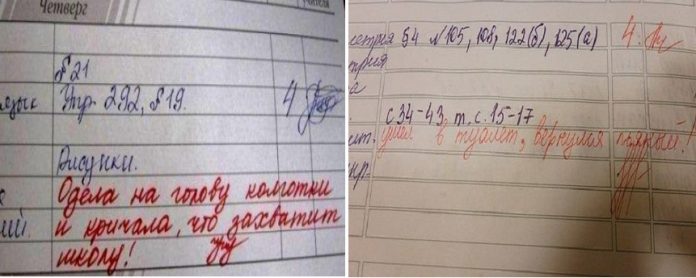 Четверг
учителя
№21
язык Упр. 292, §19. 4
Рисунки.
Одела на голову колготки
и кричала, что захватит
школу!
етрия §4 №105, 108, 122(б), 125(а) 4.
с 34-43. т.с. 15-17
ушел в туалет, вернулся пьяный!